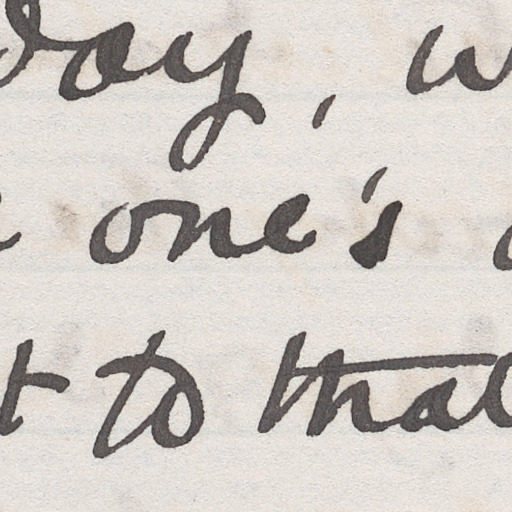 day, w
one's
t to that